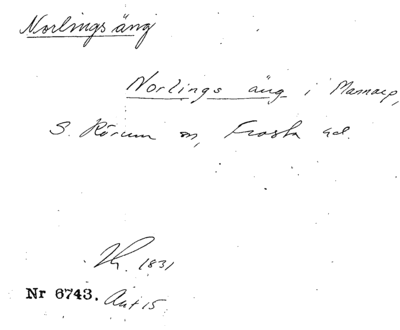 Norlings äng
Norlings äng i Mannarp,
S. Rörum sn, Frosta hd.
1831
Nr 6743. Akt 15